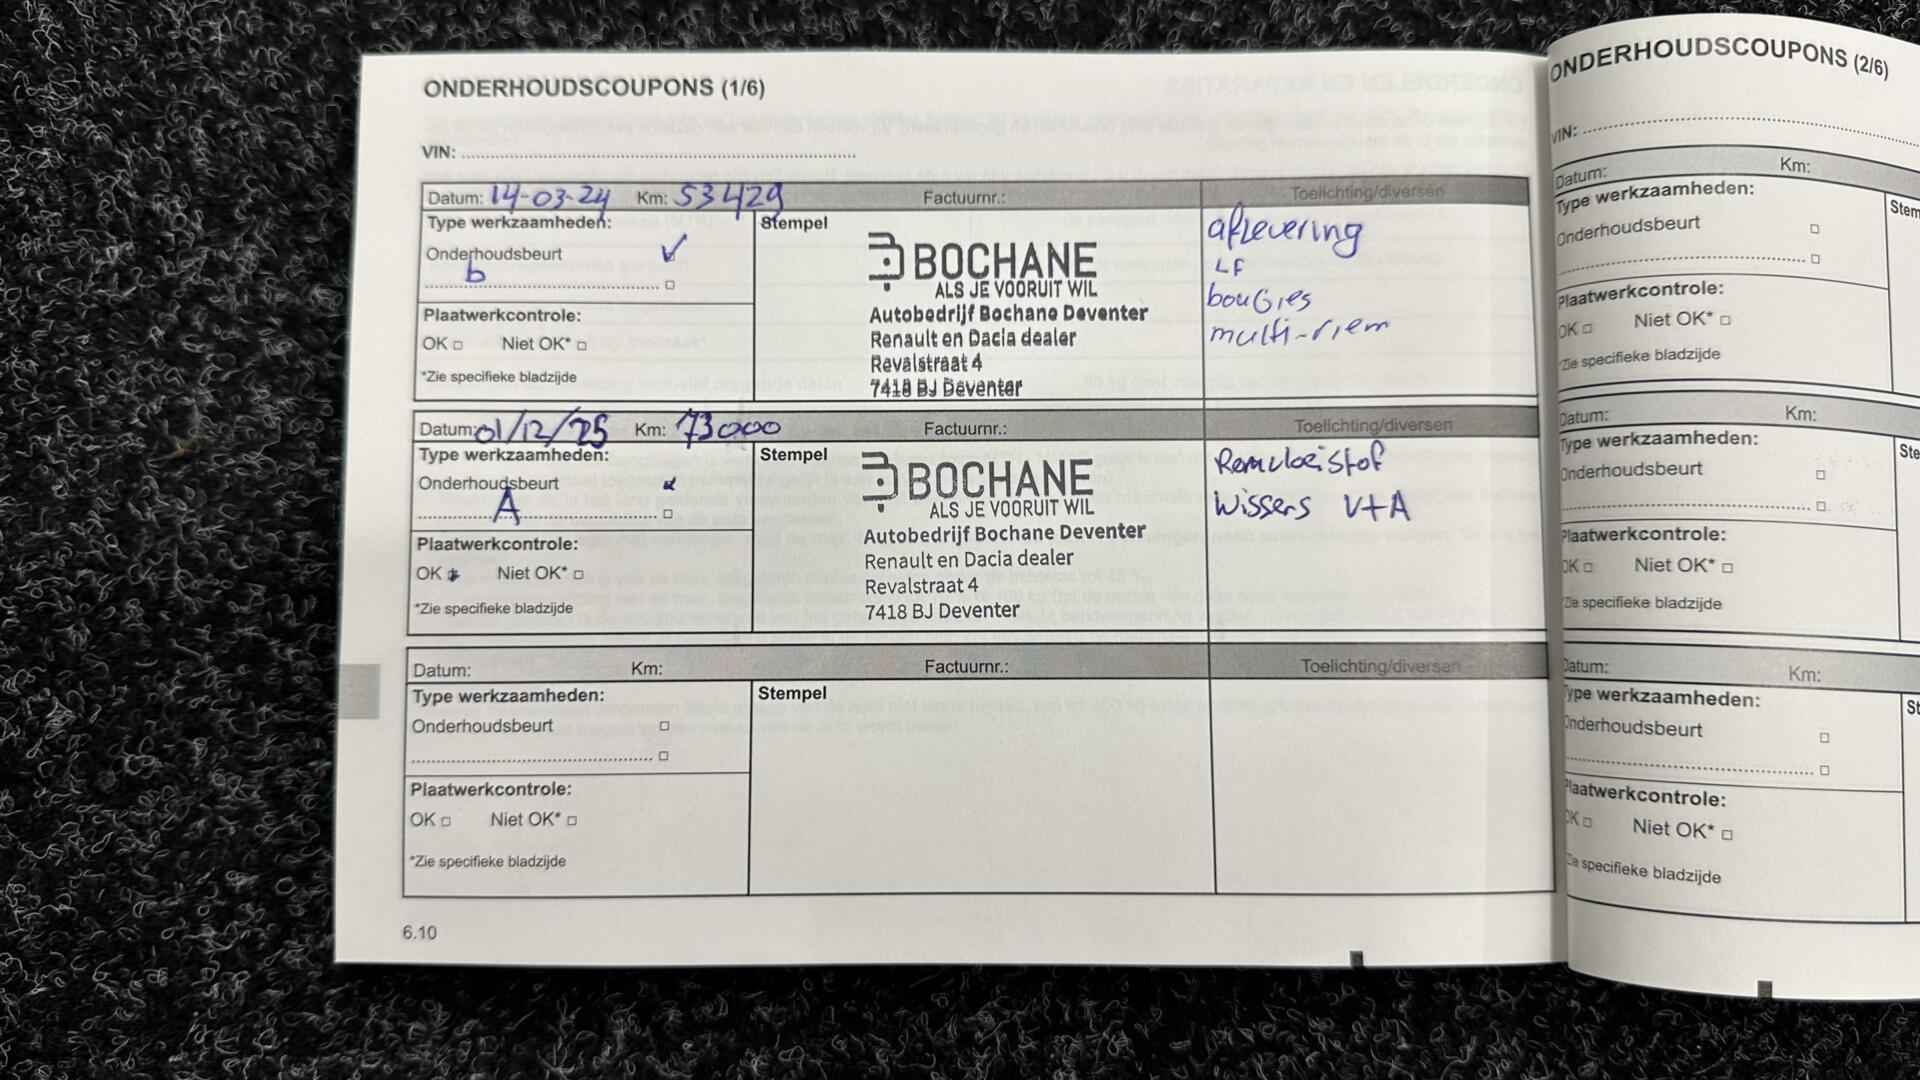 ONDERHOUDSCOUPONS (1/6)
VIN:
Datum: 14-03-24 Km: 53429 Factuurnr.: Toelichting/diversen
Type werkzaamheden: Stempel
Onderhoudsbeurt
b
Plaatwerkcontrole:
OK Niet OK*
*Zie specifieke bladzijde
BOCHANE
ALS JE VOORUIT WIL
Autobedrijf Bochane Deventer
Renault en Dacia dealer
Revalstraat 4
7418 BJ Deventer
aflevering
LF
bouGies
multi-riem
Datum: 01/12/25 Km: 73000 Factuurnr.: Toelichting/diversen
Type werkzaamheden: Stempel
Onderhoudsbeurt
A
Plaatwerkcontrole:
OK Niet OK*
*Zie specifieke bladzijde
BOCHANE
ALS JE VOORUIT WIL
Autobedrijf Bochane Deventer
Renault en Dacia dealer
Revalstraat 4
7418 BJ Deventer
Remvloeistof
Wissers V+A
Datum: Km: Factuurnr.: Toelichting/diversen
Type werkzaamheden: Stempel
Onderhoudsbeurt
Plaatwerkcontrole:
OK Niet OK*
*Zie specifieke bladzijde
6.10
ONDERHOUDSCOUPONS (2/6)
VIN:
Datum: Km:
Type werkzaamheden: Stem
Onderhoudsbeurt
Plaatwerkcontrole:
OK Niet OK*
*Zie specifieke bladzijde
Datum: Km:
Type werkzaamheden: Ste
Onderhoudsbeurt
Plaatwerkcontrole:
OK Niet OK*
*Zie specifieke bladzijde
Datum: Km:
Type werkzaamheden: St
Onderhoudsbeurt
Plaatwerkcontrole:
OK Niet OK*
Zie specifieke bladzijde